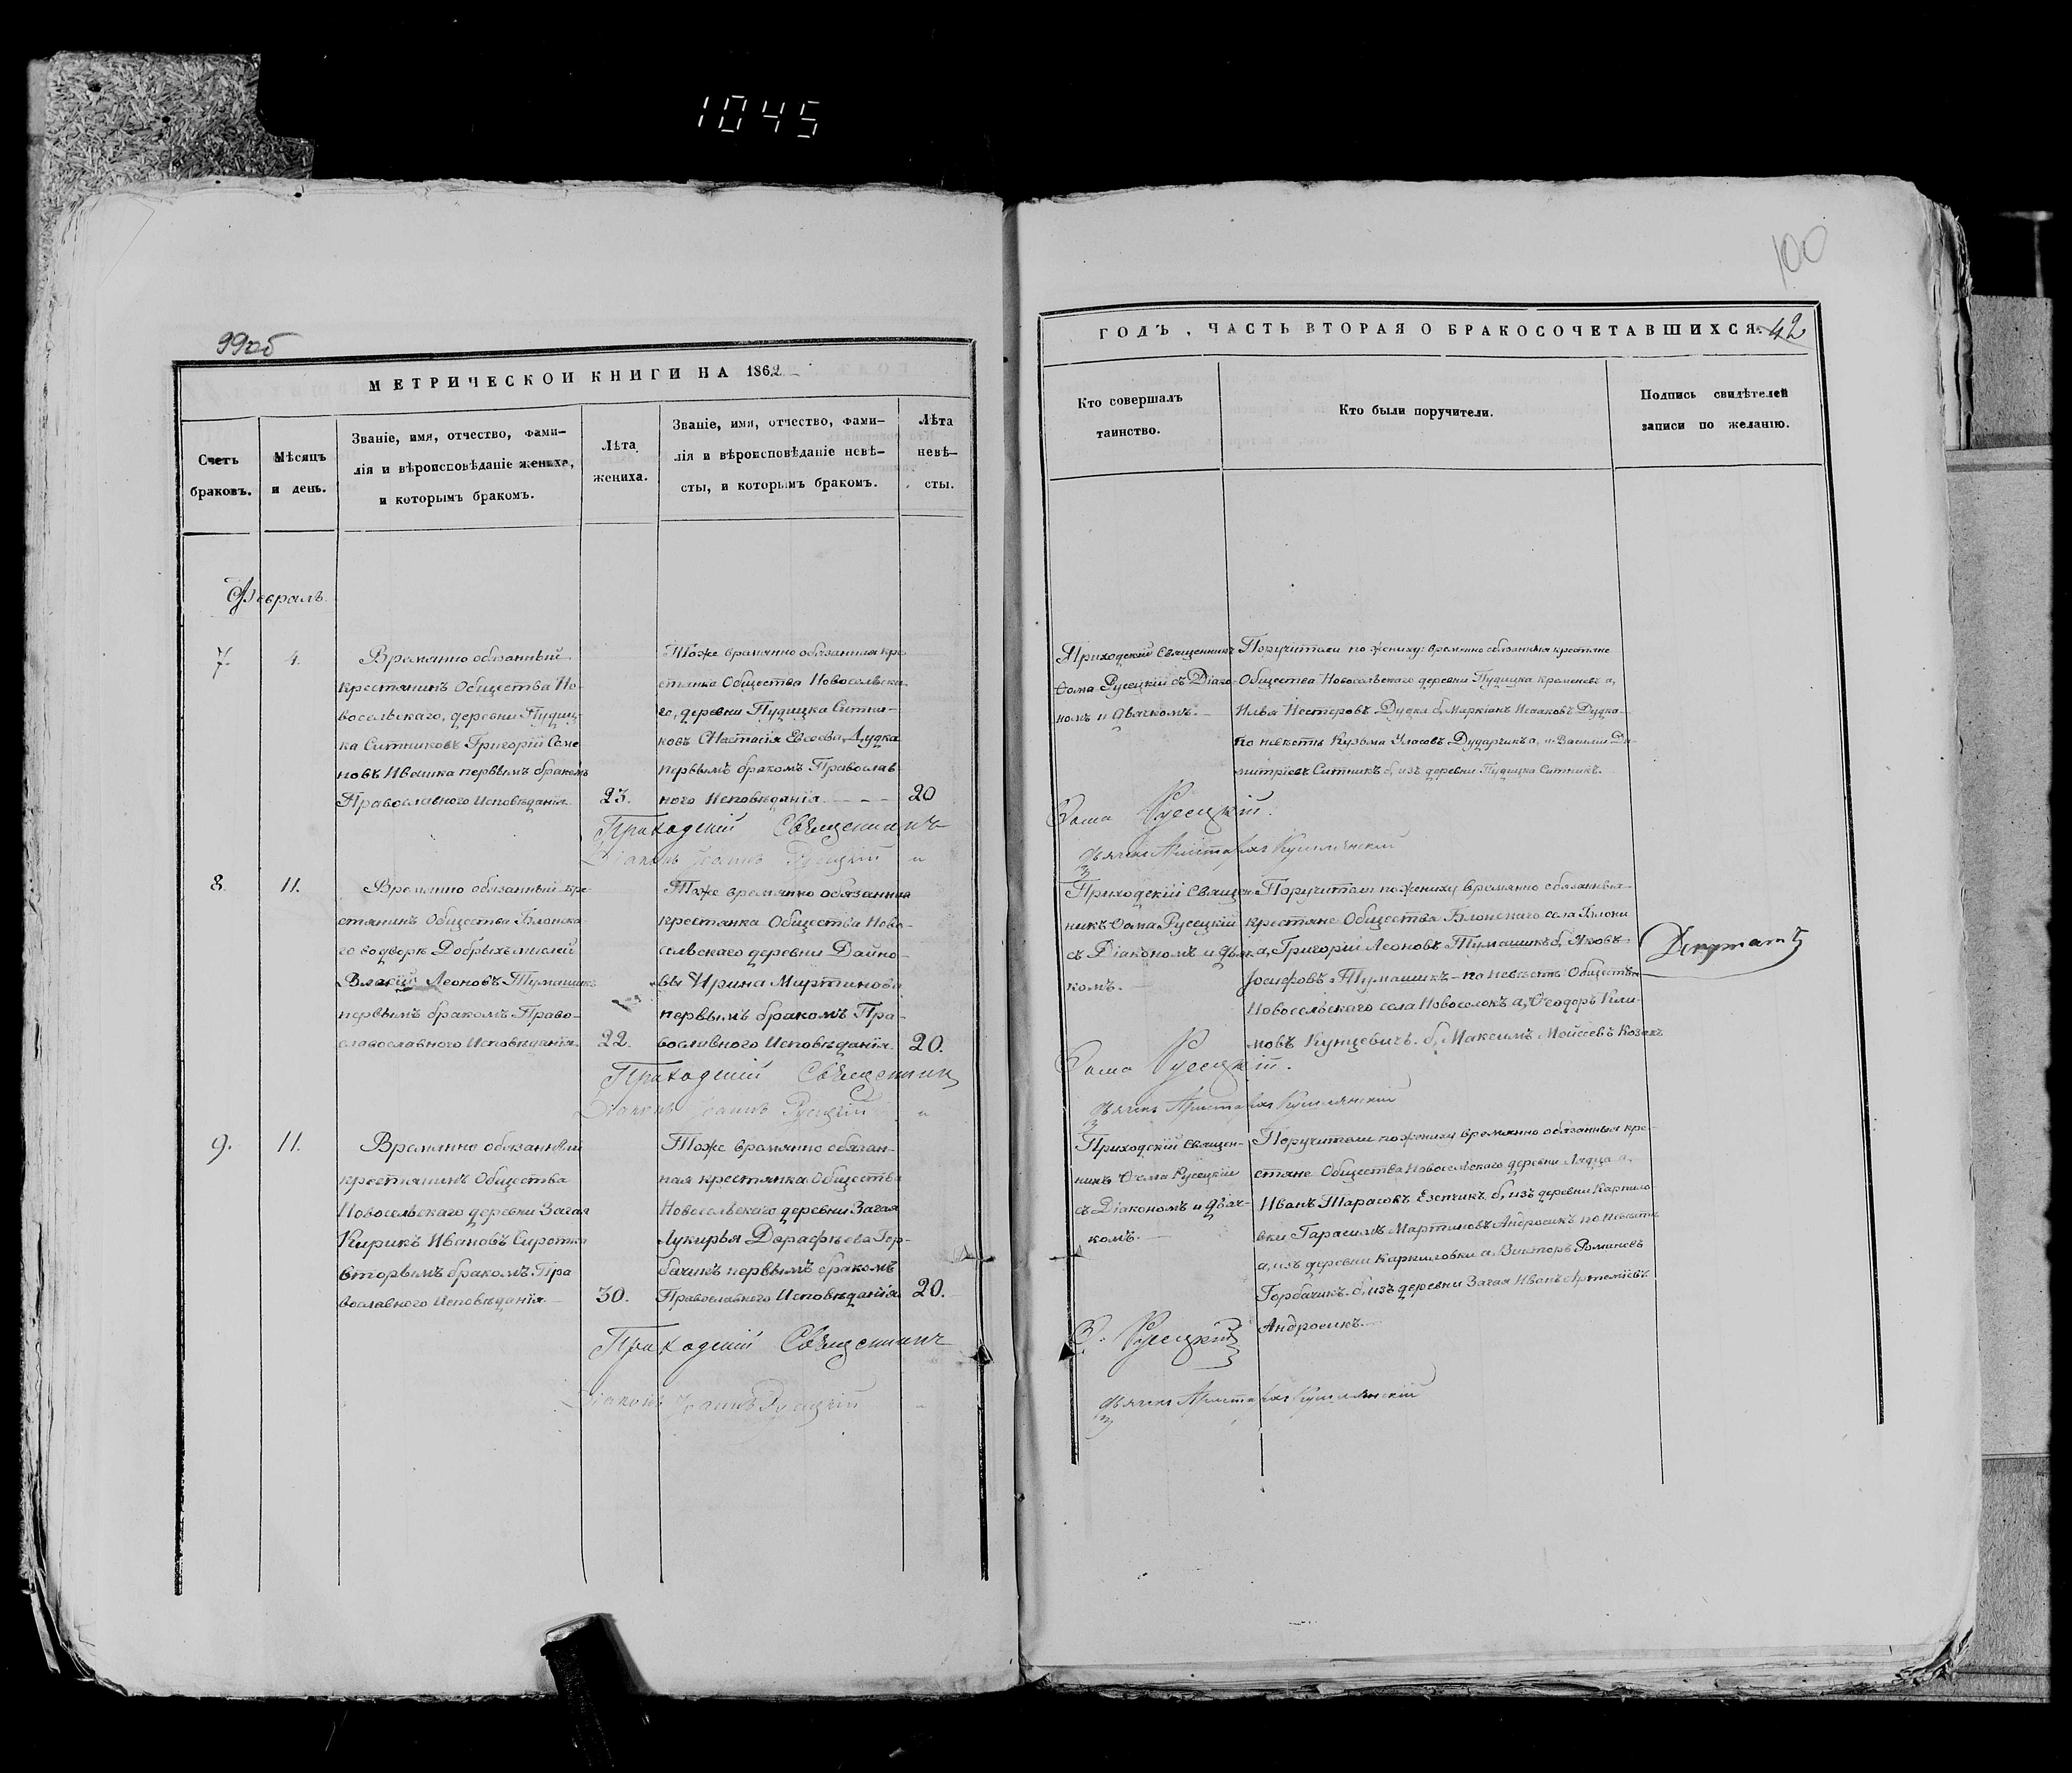 1045
99об
МЕТРИЧЕСКОЙ КНИГИ НА 1862
Счетъ браковъ.
Мѣсяцъ и день.
Званіе, имя, отчество, фами-
лія и вѣроисповѣданіе жениха,
и которымъ бракомъ.
Лѣта жениха.
Званіе, имя, отчество, фами-
лія и вѣроисповѣданіе невѣ-
сты, и которымъ бракомъ.
Лѣта невѣ-
сты.
Февраль
7.
4.
Времянно обязанный
крестянинъ Общества Но-
восельскаго, деревни Пудиц-
ка Ситниковъ Григорій Семе
новъ Ивашка первымъ бракомъ
Православного Исповѣданія
23.
Тоже времянно обязанная кре
стянка Общества Новосельска-
го, деревни Пудицка Ситни-
ковъ Настасія Дудка
первымъ бракомъ Православ
ного Исповѣданія
20
Приходскій Священникъ
Діаконъ Іоаннъ Русецкій и
8.
11.
Времянно обязанный кре-
стянинъ Общества Блонска-
го Добрыхъмыслей
Леоновъ Тумашикъ
первымъ бракомъ Право-
славославного Исповѣданія.
22.
Тоже времянно обязанная
крестянка Общества Ново-
сельскаго деревни Дайно-
вы Ирина Мартинова
первымъ бракомъ Пра-
вославного Исповѣданія
20.
Приходскій Священник
Діаконъ Іоаннъ Русецкій и
9.
11.
Времянно обязанный
крестянинъ Общества
Новосельскаго деревни Загая
Кирикъ Ивановъ Сиротка
вторымъ бракомъ Пра
вославного Исповѣданія
30.
Тоже времянно обязан-
ная крестянка Общества
Новосельскаго деревни Загая
Лукирья Дорафѣева Гор-
бачикъ первымъ бракомъ
Православного Исповѣданія
20.
Приходскій Священникъ
Діаконъ Іоаннъ Русецкій
100
ГОДЪ, ЧАСТЬ ВТОРАЯ О БРАКОСОЧЕТАВШИХСЯ. 42
Кто совершалъ
таинство.
Кто были поручители.
Подпись свидѣтелей
записи по желанію.
Приходскій Священникъ
Ѳома Русецкій съ Діако-
номъ и Дьячкомъ.
Поручители по жениху: временно обязанныя крестяне
Общества Новосельскаго деревни Пудицка Кременевъ а,
Илья Нестеровъ Дудка б, Маркіанъ Исааковъ Дудка
по невѣстѣ Кузьма Уласовъ Дударчикъ а, и Василій Ди-
митріевъ Ситникъ б, изъ деревни Пудицка Ситникъ.
Ѳома Русецкій.
Дьячекъ Аристархъ
Приходскій Священ-
никъ Ѳома Русецкій
съ Діакономъ и Дьяч-
комъ.
Поручители по жениху времянно обязанныя
крестяне Общества Блонскаго села Блони
а, Григорій Леоновъ Тумашикъ б, Яковъ
Іосифовъ Тумашикъ – по невѣстѣ Общества
Новосельскаго села Новоселокъ а, Ѳеодоръ Кли-
мовъ Кунцевичъ. б, Максимъ Мойсеевъ Козакъ
Ѳома Русецкій.
Дьячекъ Аристархъ
Приходскій Священ-
никъ Ѳома Русецкій
съ Діакономъ и Дьяч-
комъ.
Поручители по жениху времянно обязанныя кре-
стяне Общества Новосельскаго деревни Лядца а.
Иванъ Тарасовъ Езепчикъ б, изъ деревни Карпило
вки Гарасимъ Мартиновъ Андросикъ по невѣстѣ
а, изъ деревни Карпиловки а Викторъ Романовъ
Горбачикъ. б, изъ деревни Загая Иванъ Артеміевъ
Андросикъ.
Ѳ. Русецкій
Дьячекъ Аристархъ